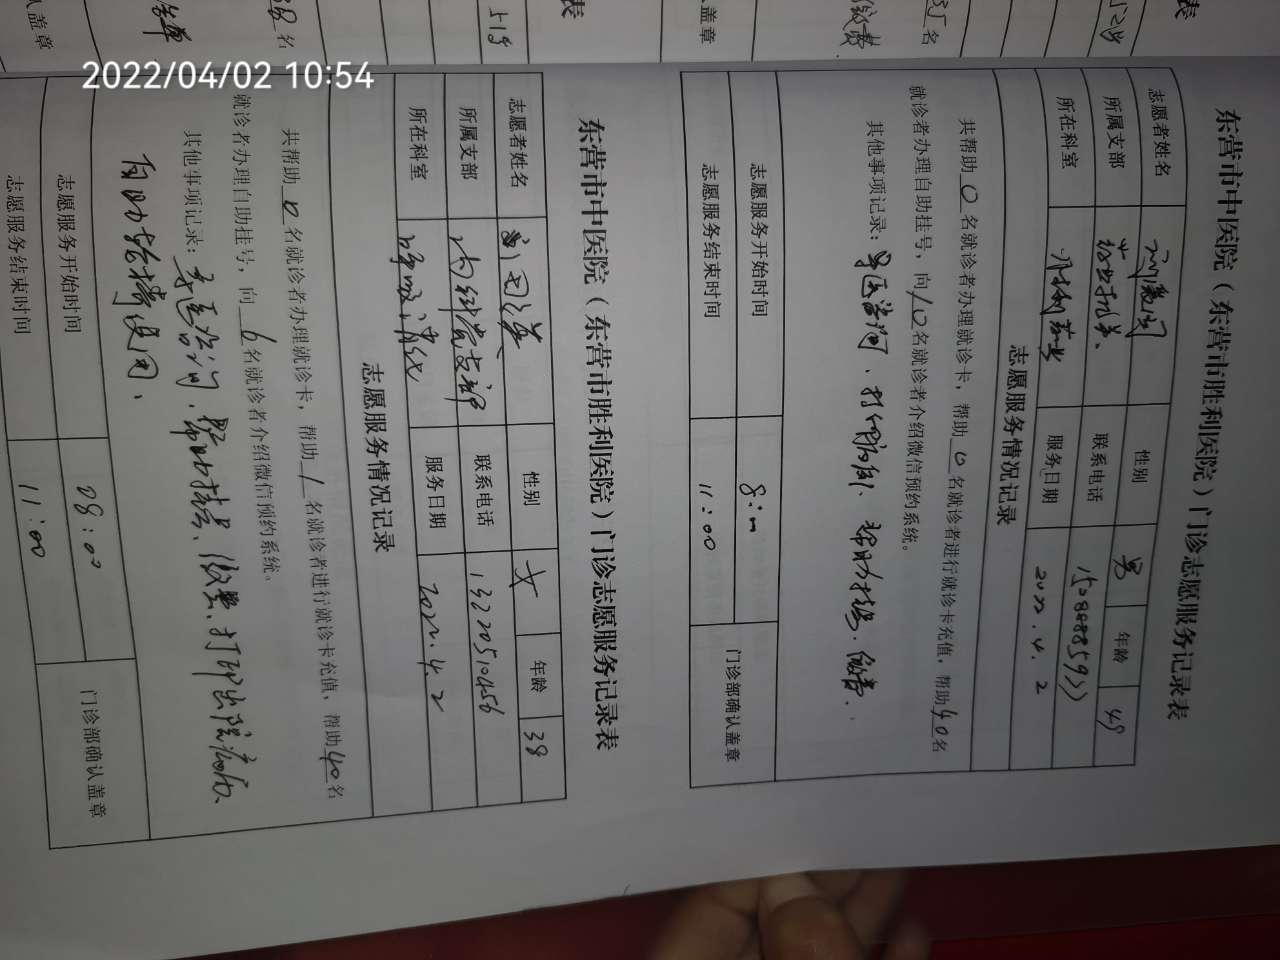 2022/04/02 10:54
东营市中医院（东营市胜利医院）门诊志愿服务记录表
志愿者姓名 性别 男 年龄 49
所属支部 联系电话
所在科室 服务日期 2022.4.2
志愿服务情况记录
共帮助 0 名就诊者办理就诊卡，帮助 0 名就诊者进行就诊卡充值，帮助 40 名
就诊者办理自助挂号，向 10 名就诊者介绍微信预约系统。
其他事项记录：导医咨询、打印病例、帮助挂号、缴费.
志愿服务开始时间 8:00 门诊部确认盖章
志愿服务结束时间 11:00
东营市中医院（东营市胜利医院）门诊志愿服务记录表
志愿者姓名 性别 女 年龄 38
所属支部 内科党支部 联系电话 13220510456
所在科室 服务日期 2022.4.2
志愿服务情况记录
共帮助 0 名就诊者办理就诊卡，帮助 1 名就诊者进行就诊卡充值，帮助 40 名
就诊者办理自助挂号，向 6 名就诊者介绍微信预约系统。
其他事项记录：导医咨询、帮助挂号、缴费、打印出院病历、
自助轮椅使用、
志愿服务开始时间 08:00 门诊部确认盖章
志愿服务结束时间 11:00